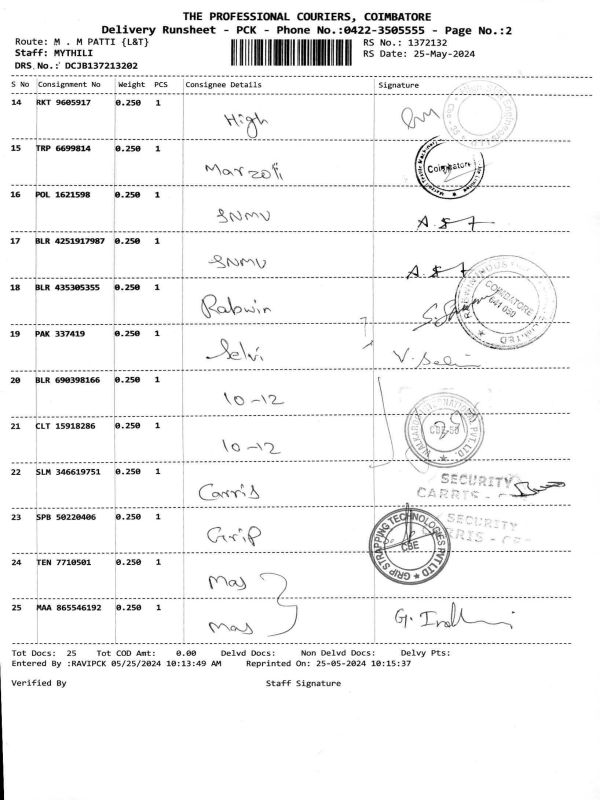 THE PROFESSIONAL COURIERS, COIMBATORE
Delivery Runsheet - PCK - Phone No.:0422-3505555 - Page No.:2
Route: M . M PATTI {L&T} RS No.: 1372132
Staff: MYTHILI RS Date: 25-May-2024
DRS No.: DCJB137213202
S No Consignment No Weight PCS Consignee Details Signature
14 RKT 9605917 0.250 1 High
15 TRP 6699814 0.250 1 Marzoli Coimbatore
16 POL 1621598 0.250 1 SNMV
17 BLR 4251917987 0.250 1 SNMV
18 BLR 435305355 0.250 1 Rabwin COIMBATORE 641 050
19 PAK 337419 0.250 1 Selvi V. Selvi
20 BLR 690398166 0.250 1 10-12
21 CLT 15918286 0.250 1 10-12 CBE-50
22 SLM 346619751 0.250 1 Carris SECURITY CARRIS -
23 SPB 50220406 0.250 1 Grip GRIP STRAPPING TECHNOLOGIES PVT LTD CBE SECURITY
24 TEN 7710501 0.250 1 Mas
25 MAA 865546192 0.250 1 Mas
Tot Docs: 25 Tot COD Amt: 0.00 Delvd Docs: Non Delvd Docs: Delvy Pts:
Entered By :RAVIPCK 05/25/2024 10:13:49 AM Reprinted On: 25-05-2024 10:15:37
Verified By Staff Signature